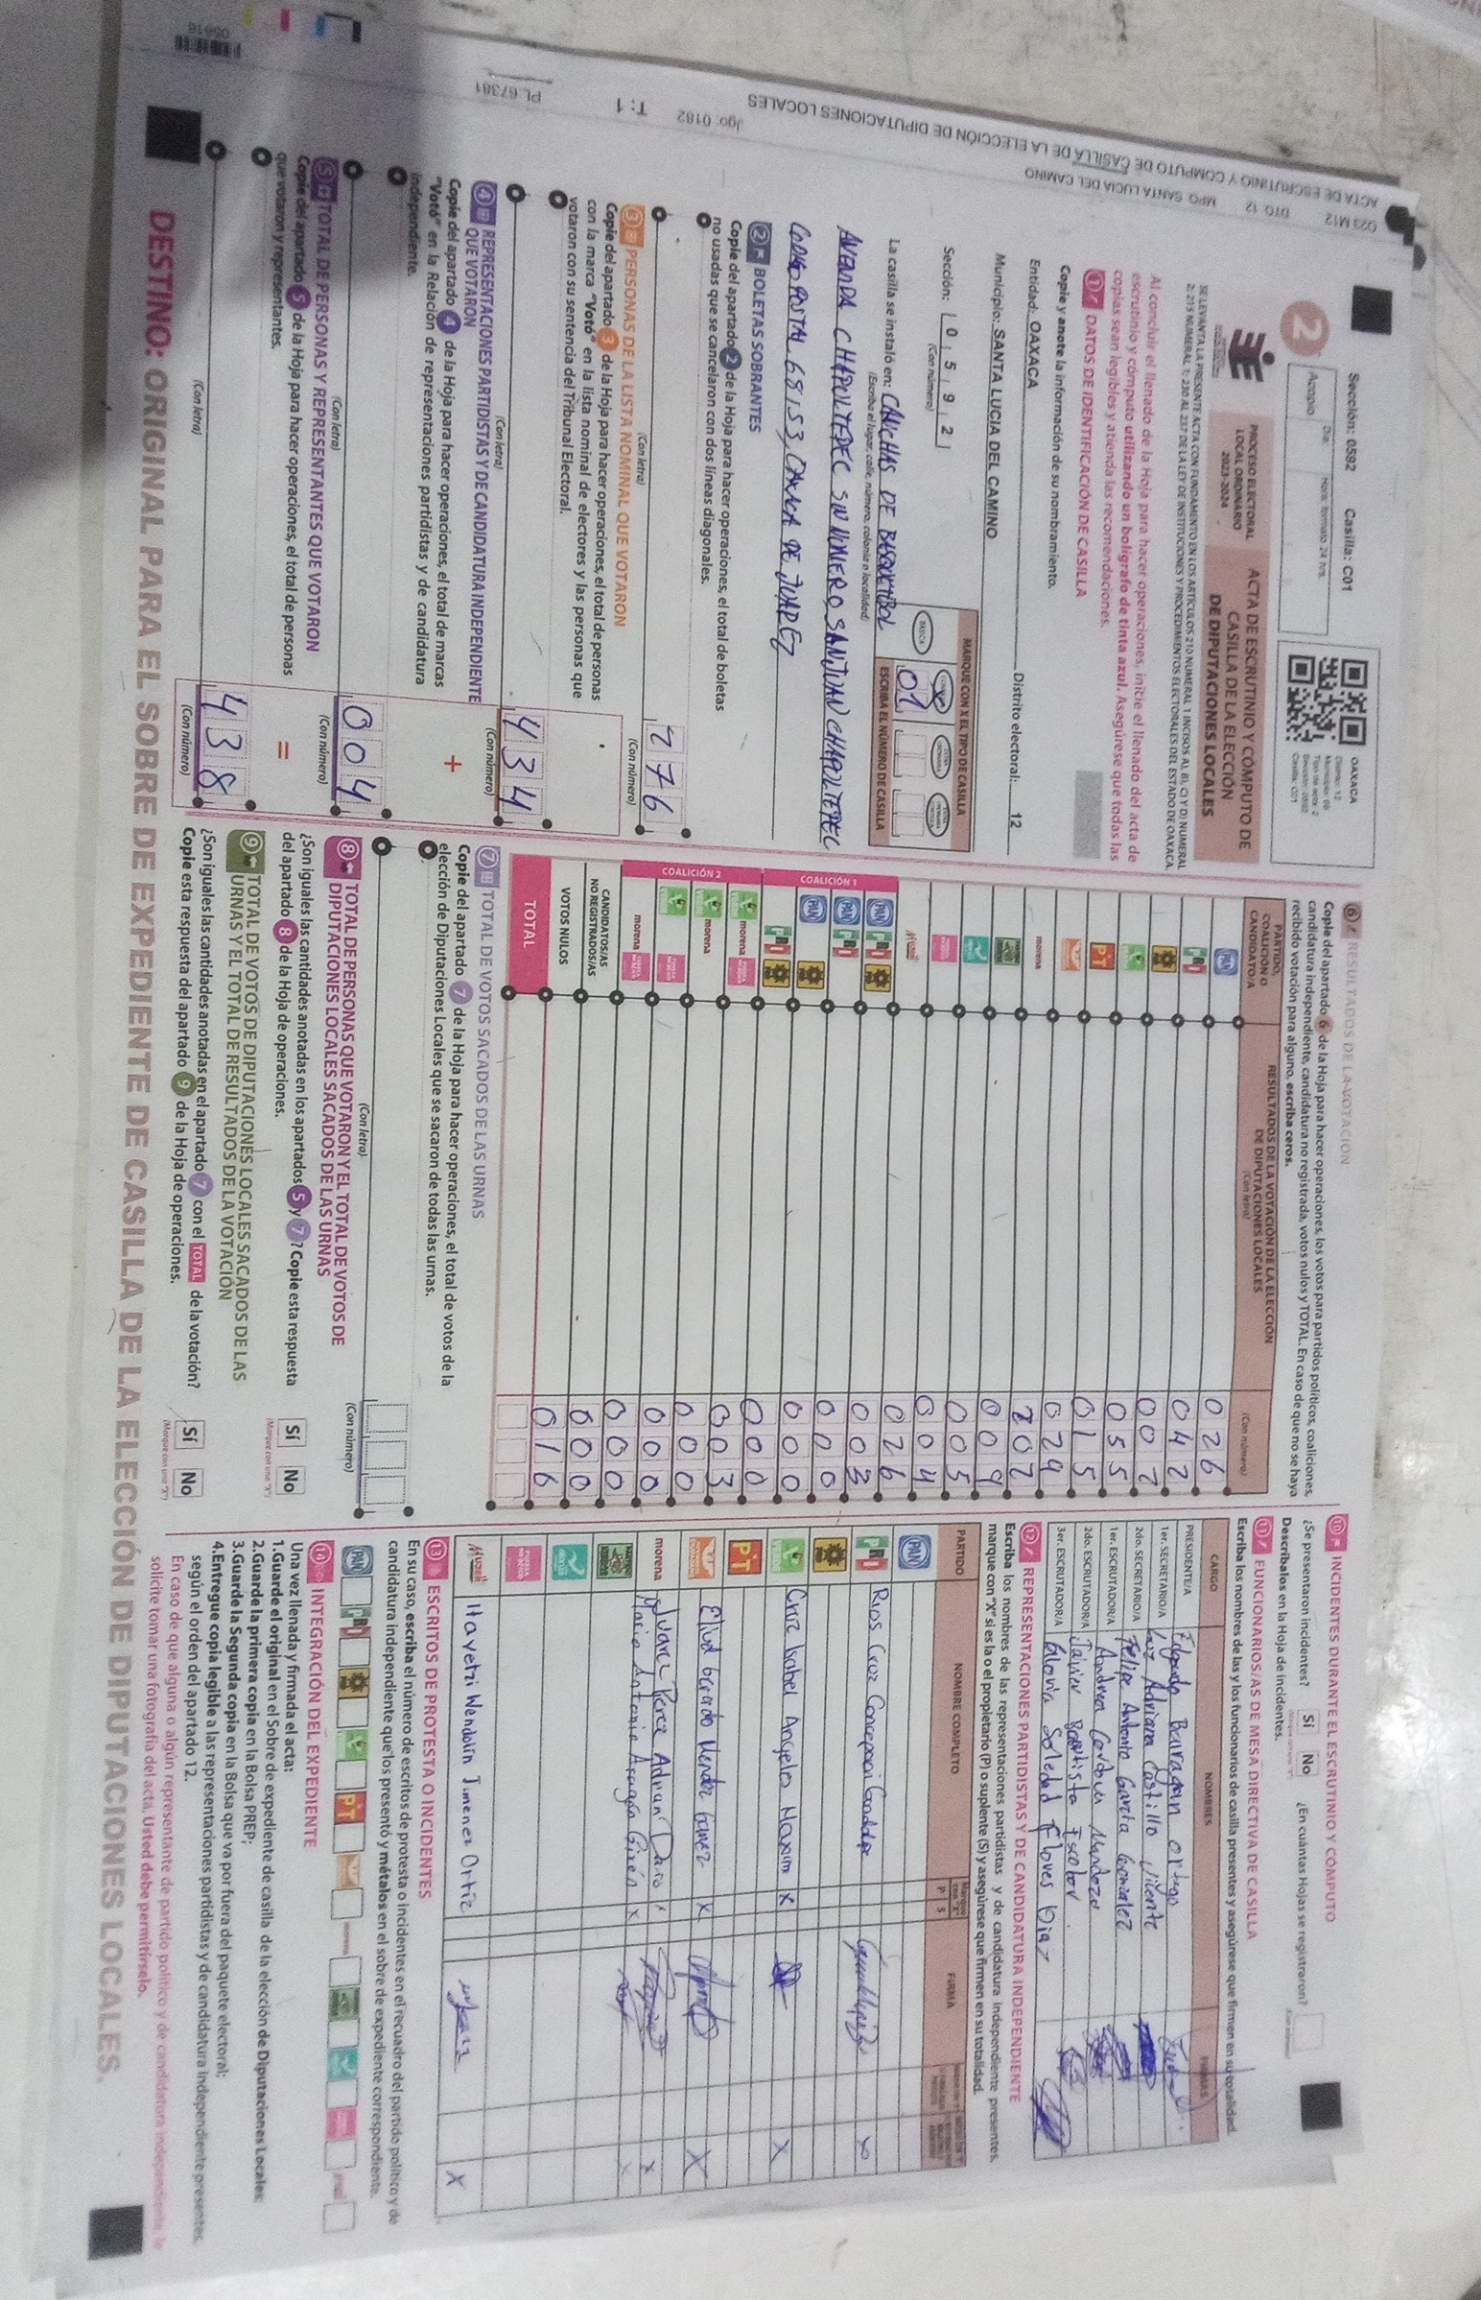 Sección: 0592 Casilla: C01
Acopio
Día:
Hora: formato 24 hrs.
2
OAXACA
Distrito: 12
PROCESO ELECTORAL
LOCAL ORDINARIO
2023-2024
ACTA DE ESCRUTINIO Y CÓMPUTO DE
CASILLA DE LA ELECCIÓN
DE DIPUTACIONES LOCALES
SE LEVANTA LA PRESENTE ACTA CON FUNDAMENTO EN LOS ARTÍCULOS 210 NUMERAL 1 INCISOS A), B), C) Y D) NUMERAL
2; 215 NUMERAL 1; 230 AL 237 DE LA LEY DE INSTITUCIONES Y PROCEDIMIENTOS ELECTORALES DEL ESTADO DE OAXACA.
Al concluir el llenado de la Hoja para hacer operaciones, inicie el llenado del acta de
escrutinio y cómputo utilizando un bolígrafo de tinta azul. Asegúrese que todas las
copias sean legibles y atienda las recomendaciones.
1 DATOS DE IDENTIFICACIÓN DE CASILLA
Copie y anote la información de su nombramiento.
Entidad: OAXACA Distrito electoral: 12
Municipio: SANTA LUCIA DEL CAMINO
Sección: 0 5 9 2
(Con número)
MARQUE CON X EL TIPO DE CASILLA
BÁSICA
ESCRIBA EL NÚMERO DE CASILLA
01
La casilla se instaló en: CANCHAS DE BASQUETBOL
(Escriba el lugar, calle, número, colonia o localidad)
AVENIDA CHAPULTEPEC SIN NUMERO, SAN JUAN CHAPULTEPEC
CODIGO POSTAL 68153, OAXACA DE JUAREZ
2 BOLETAS SOBRANTES
Copie del apartado 2 de la Hoja para hacer operaciones, el total de boletas
no usadas que se cancelaron con dos líneas diagonales.
276
(Con letra) (Con número)
3 PERSONAS DE LA LISTA NOMINAL QUE VOTARON
Copie del apartado 3 de la Hoja para hacer operaciones, el total de personas
con la marca "Votó" en la lista nominal de electores y las personas que
votaron con su sentencia del Tribunal Electoral.
434
(Con letra) (Con número)
4 REPRESENTACIONES PARTIDISTAS Y DE CANDIDATURA INDEPENDIENTE
QUE VOTARON
Copie del apartado 4 de la Hoja para hacer operaciones, el total de marcas
"Votó" en la Relación de representaciones partidistas y de candidatura
independiente.
+
004
(Con letra) (Con número)
5 TOTAL DE PERSONAS Y REPRESENTANTES QUE VOTARON
Copie del apartado 5 de la Hoja para hacer operaciones, el total de personas
que votaron y representantes.
=
438
(Con letra) (Con número)
6 RESULTADOS DE LA VOTACIÓN
Copie del apartado 6 de la Hoja para hacer operaciones, los votos para partidos políticos, coaliciones,
candidatura independiente, candidatura no registrada, votos nulos y TOTAL. En caso de que no se haya
recibido votación para alguno, escriba ceros.
PARTIDO,
COALICIÓN O
CANDIDATO/A
RESULTADOS DE LA VOTACIÓN DE LA ELECCIÓN
DE DIPUTACIONES LOCALES
(Con letra)
(Con número)
PAN 026
PRI 042
002
055
PT 015
029
morena 202
009
005
004
MUJER 026
COALICIÓN 1
PAN PRI 003
PAN PRI 000
PAN 000
PRI 000
COALICIÓN 2
morena 003
morena 000
000
morena 000
CANDIDATOS/AS
NO REGISTRADOS/AS
000
VOTOS NULOS 016
TOTAL
7 TOTAL DE VOTOS SACADOS DE LAS URNAS
Copie del apartado 7 de la Hoja para hacer operaciones, el total de votos de la
elección de Diputaciones Locales que se sacaron de todas las urnas.
(Con letra) (Con número)
8 TOTAL DE PERSONAS QUE VOTARON Y EL TOTAL DE VOTOS DE
DIPUTACIONES LOCALES SACADOS DE LAS URNAS
¿Son iguales las cantidades anotadas en los apartados 5 y 7? Copie esta respuesta
del apartado 8 de la Hoja de operaciones.
Sí No
9 TOTAL DE VOTOS DE DIPUTACIONES LOCALES SACADOS DE LAS
URNAS Y EL TOTAL DE RESULTADOS DE LA VOTACIÓN
¿Son iguales las cantidades anotadas en el apartado 7 con el TOTAL de la votación?
Copie esta respuesta del apartado 9 de la Hoja de operaciones.
Sí No
10 INCIDENTES DURANTE EL ESCRUTINIO Y CÓMPUTO
¿Se presentaron incidentes? Sí No ¿En cuántas Hojas se registraron?
Descríbalos en la Hoja de incidentes.
11 FUNCIONARIOS/AS DE MESA DIRECTIVA DE CASILLA
Escriba los nombres de las y los funcionarios de casilla presentes y asegúrese que firmen en su totalidad.
CARGO NOMBRES FIRMAS
PRESIDENTE/A Edgardo Barragan Ortego
1er. SECRETARIO/A Luz Adriana Castillo Vicente
2do. SECRETARIO/A Felipe Antonio Garcia Gonzalez
1er. ESCRUTADOR/A Andrea Cordova Mendoza
2do. ESCRUTADOR/A Javier Bautista Escobar
3er. ESCRUTADOR/A Gloria Soledad Flores Diaz
12 REPRESENTACIONES PARTIDISTAS Y DE CANDIDATURA INDEPENDIENTE
Escriba los nombres de las representaciones partidistas y de candidatura independiente presentes,
marque con "X" si es la o el propietario (P) o suplente (S) y asegúrese que firmen en su totalidad.
PARTIDO NOMBRE COMPLETO P S FIRMA
PAN
PRI Rios Cruz Concepcion Guadalupe X
Cruz Isabel Angeles X X
PT
Eliud Gerardo Mendez Gomez X X
morena Juarez Perez Adrian Dario X X
Maria Antonia Aragon Giron X X
MUJER Itayetzi Wendolin Jimenez Ortiz X
13 ESCRITOS DE PROTESTA O INCIDENTES
En su caso, escriba el número de escritos de protesta o incidentes en el recuadro del partido político y de
candidatura independiente que los presentó y métalos en el sobre de expediente correspondiente.
PAN PRI PT
14 INTEGRACIÓN DEL EXPEDIENTE
Una vez llenada y firmada el acta:
1.Guarde el original en el Sobre de expediente de casilla de la elección de Diputaciones Locales;
2.Guarde la primera copia en la Bolsa PREP;
3.Guarde la Segunda copia en la Bolsa que va por fuera del paquete electoral;
4.Entregue copia legible a las representaciones partidistas y de candidatura independiente presentes,
según el orden del apartado 12.
En caso de que alguna o algún representante de partido político y de candidatura independiente, le
solicite tomar una fotografía del acta, Usted debe permitírselo.
DESTINO: ORIGINAL PARA EL SOBRE DE EXPEDIENTE DE CASILLA DE LA ELECCIÓN DE DIPUTACIONES LOCALES.
ACTA DE ESCRUTINIO Y COMPUTO DE CASILLA DE LA ELECCIÓN DE DIPUTACIONES LOCALES
023 M12 DTO 12 MPO SANTA LUCIA DEL CAMINO
Jgo: 0182
T: 1
PL:67381
05616